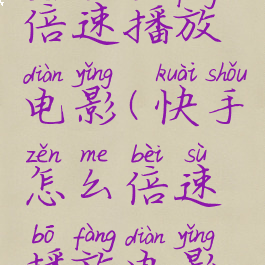 倍速播放
diàn yǐng kuài shǒu
电影(快手
zěn me bèi sù
怎么倍速
bō fàng diàn yǐng
播放电影